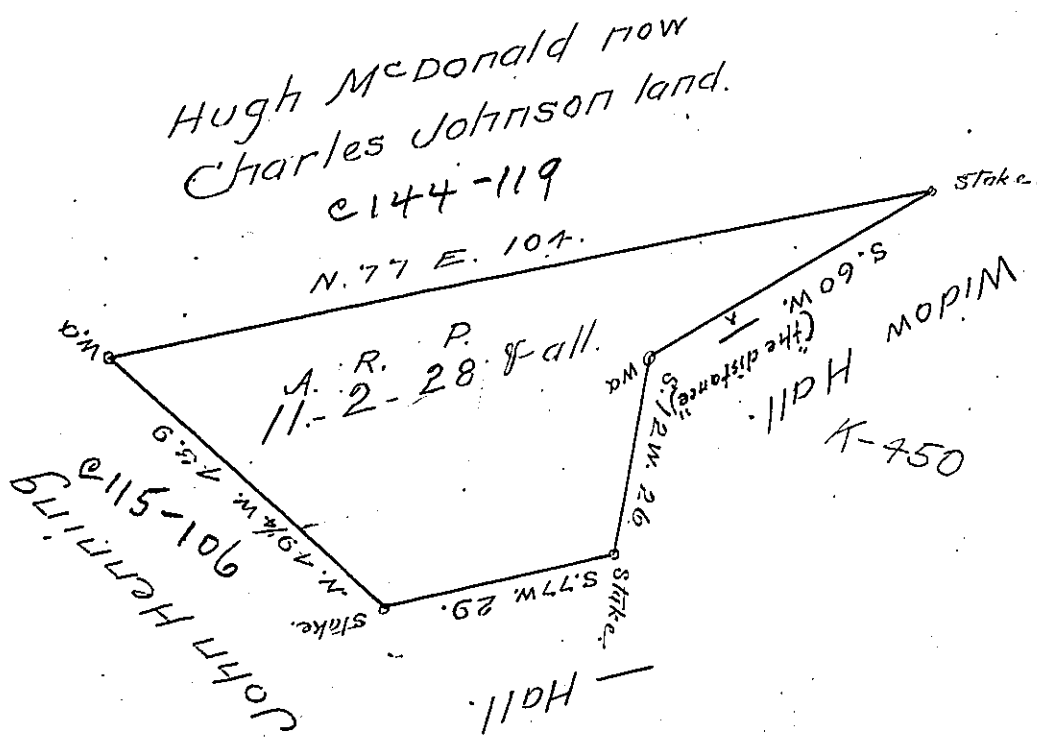 Hugh McDonald now
Charles Johnson land.
C144-119
N. 77 E. 104.
Stake.
W.O
S. 60 W.
("the distance")
Widow Hall.
K-450
A. R. P.
11.-2-28 & all.
WO
S. 12 W. 26.
Stake.
S. 77 W. 29.
Stake.
N. 49¼ W. 45.9
C115-106
John Henning
Hall.